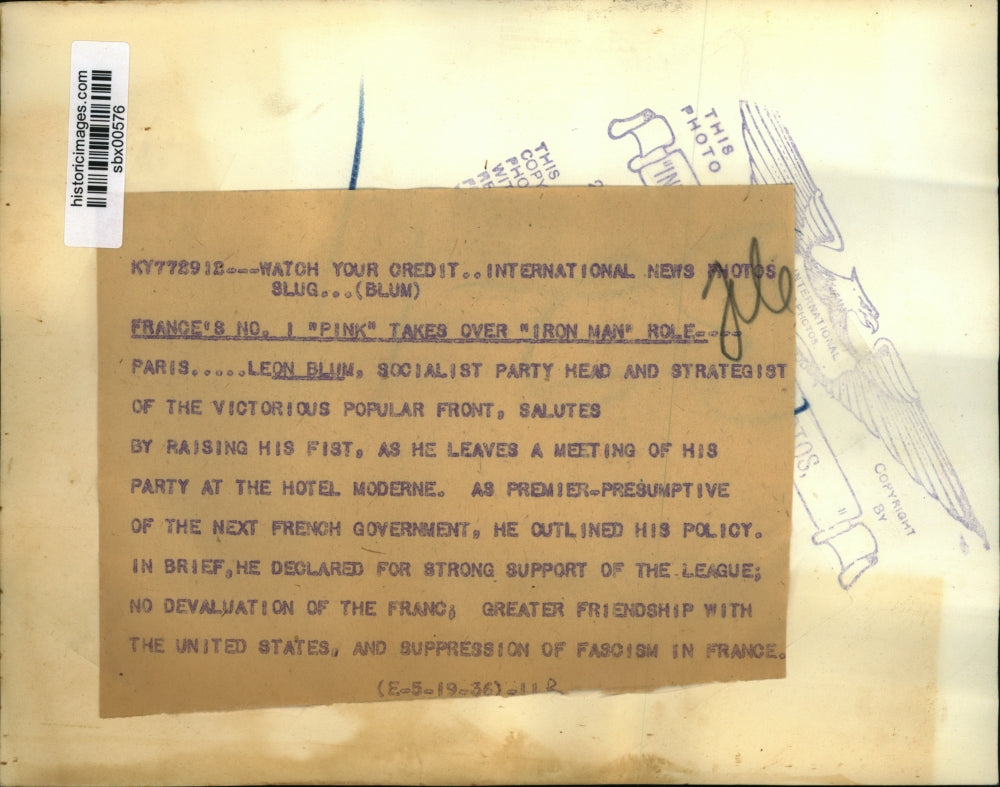 historicimages.com
sbx00576
THIS
PHOTO
THIS
COPY
PHO
WIT
RE
"IN
INTERNATIONAL
PHOTOS
TOS,
"
COPYRIGHT
BY
KY772912---WATCH YOUR CREDIT..INTERNATIONAL NEWS PHOTOS
SLUG...(BLUM)
FRANCE'S NO. 1 "PINK" TAKES OVER "IRON MAN" ROLE----
PARIS.....LEON BLUM, SOCIALIST PARTY HEAD AND STRATEGIST
OF THE VICTORIOUS POPULAR FRONT, SALUTES
BY RAISING HIS FIST, AS HE LEAVES A MEETING OF HIS
PARTY AT THE HOTEL MODERNE. AS PREMIER-PRESUMPTIVE
OF THE NEXT FRENCH GOVERNMENT, HE OUTLINED HIS POLICY.
IN BRIEF,HE DECLARED FOR STRONG SUPPORT OF THE LEAGUE;
NO DEVALUATION OF THE FRANC; GREATER FRIENDSHIP WITH
THE UNITED STATES, AND SUPPRESSION OF FASCISM IN FRANCE.
(E-5-19-36)-11R